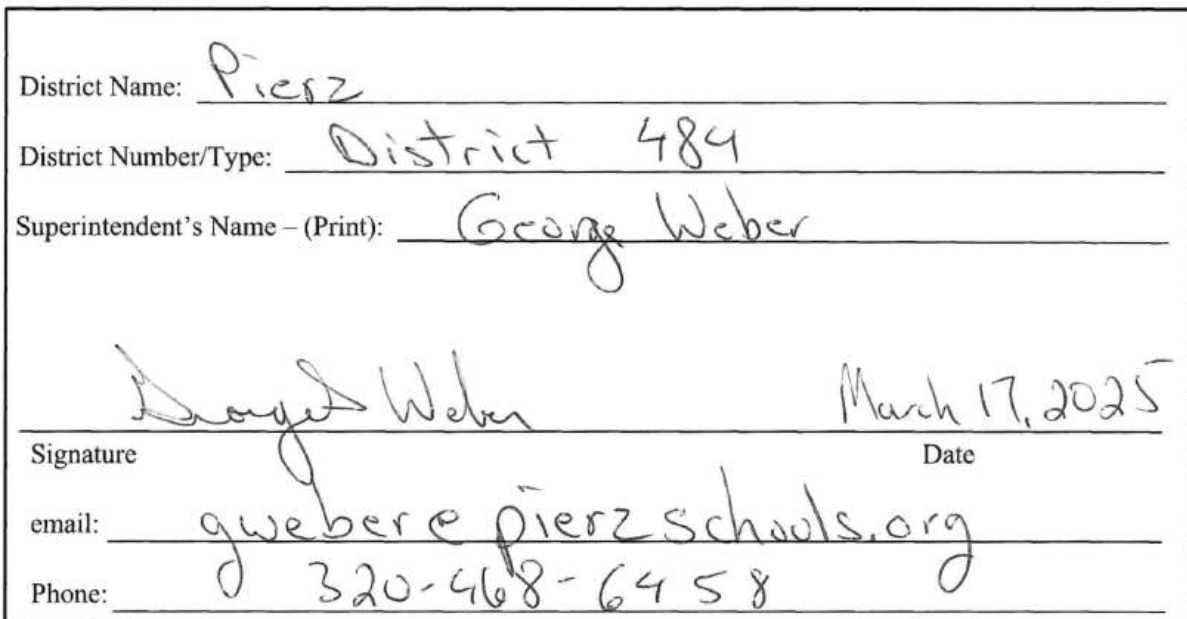 District Name: Pierz
District Number/Type: District 484
Superintendent's Name – (Print): George Weber
George Weber March 17, 2025
Signature Date
email: gweber@pierzschools.org
Phone: 320-468-6458